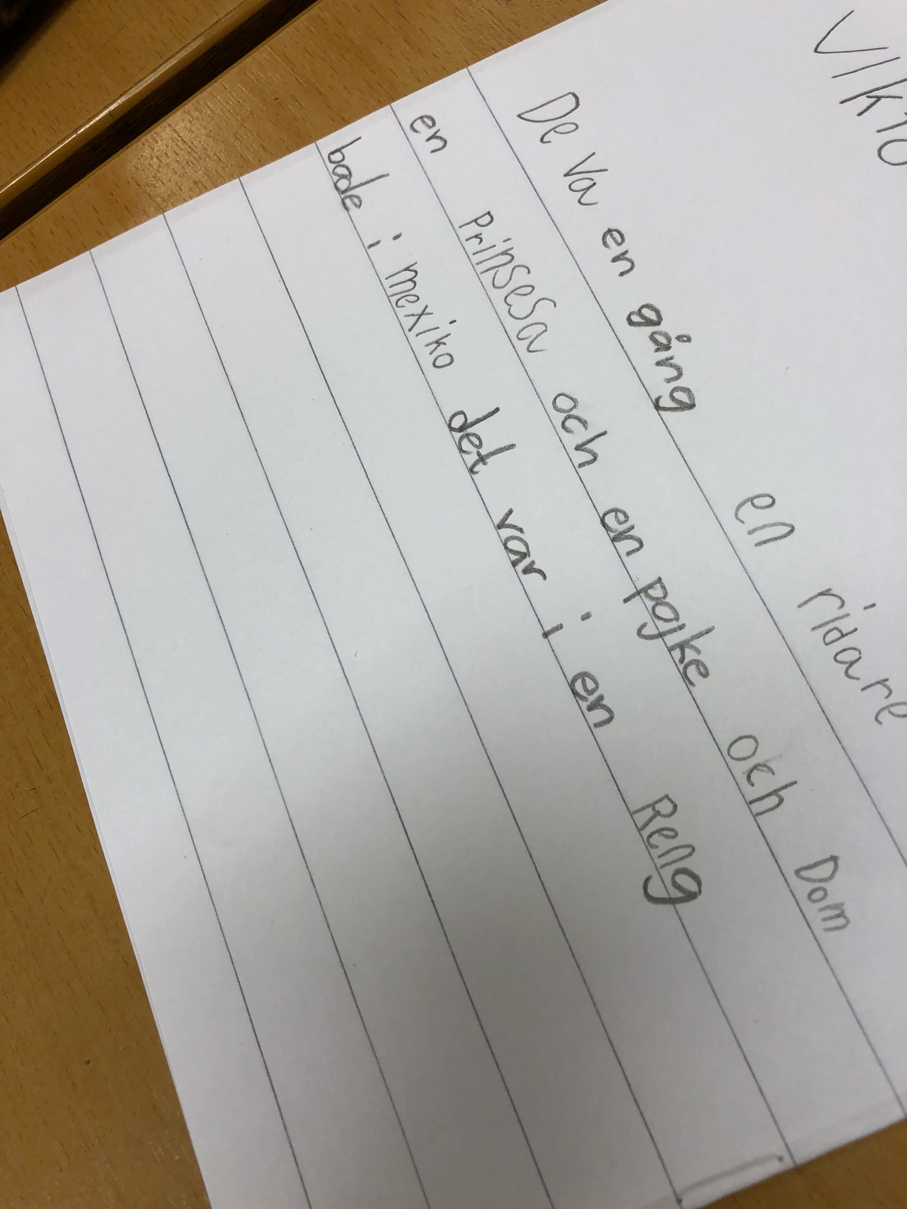 De va en gång en ridare
en Prinsesa och en pojke och Dom
bode i mexiko det var i en Reng